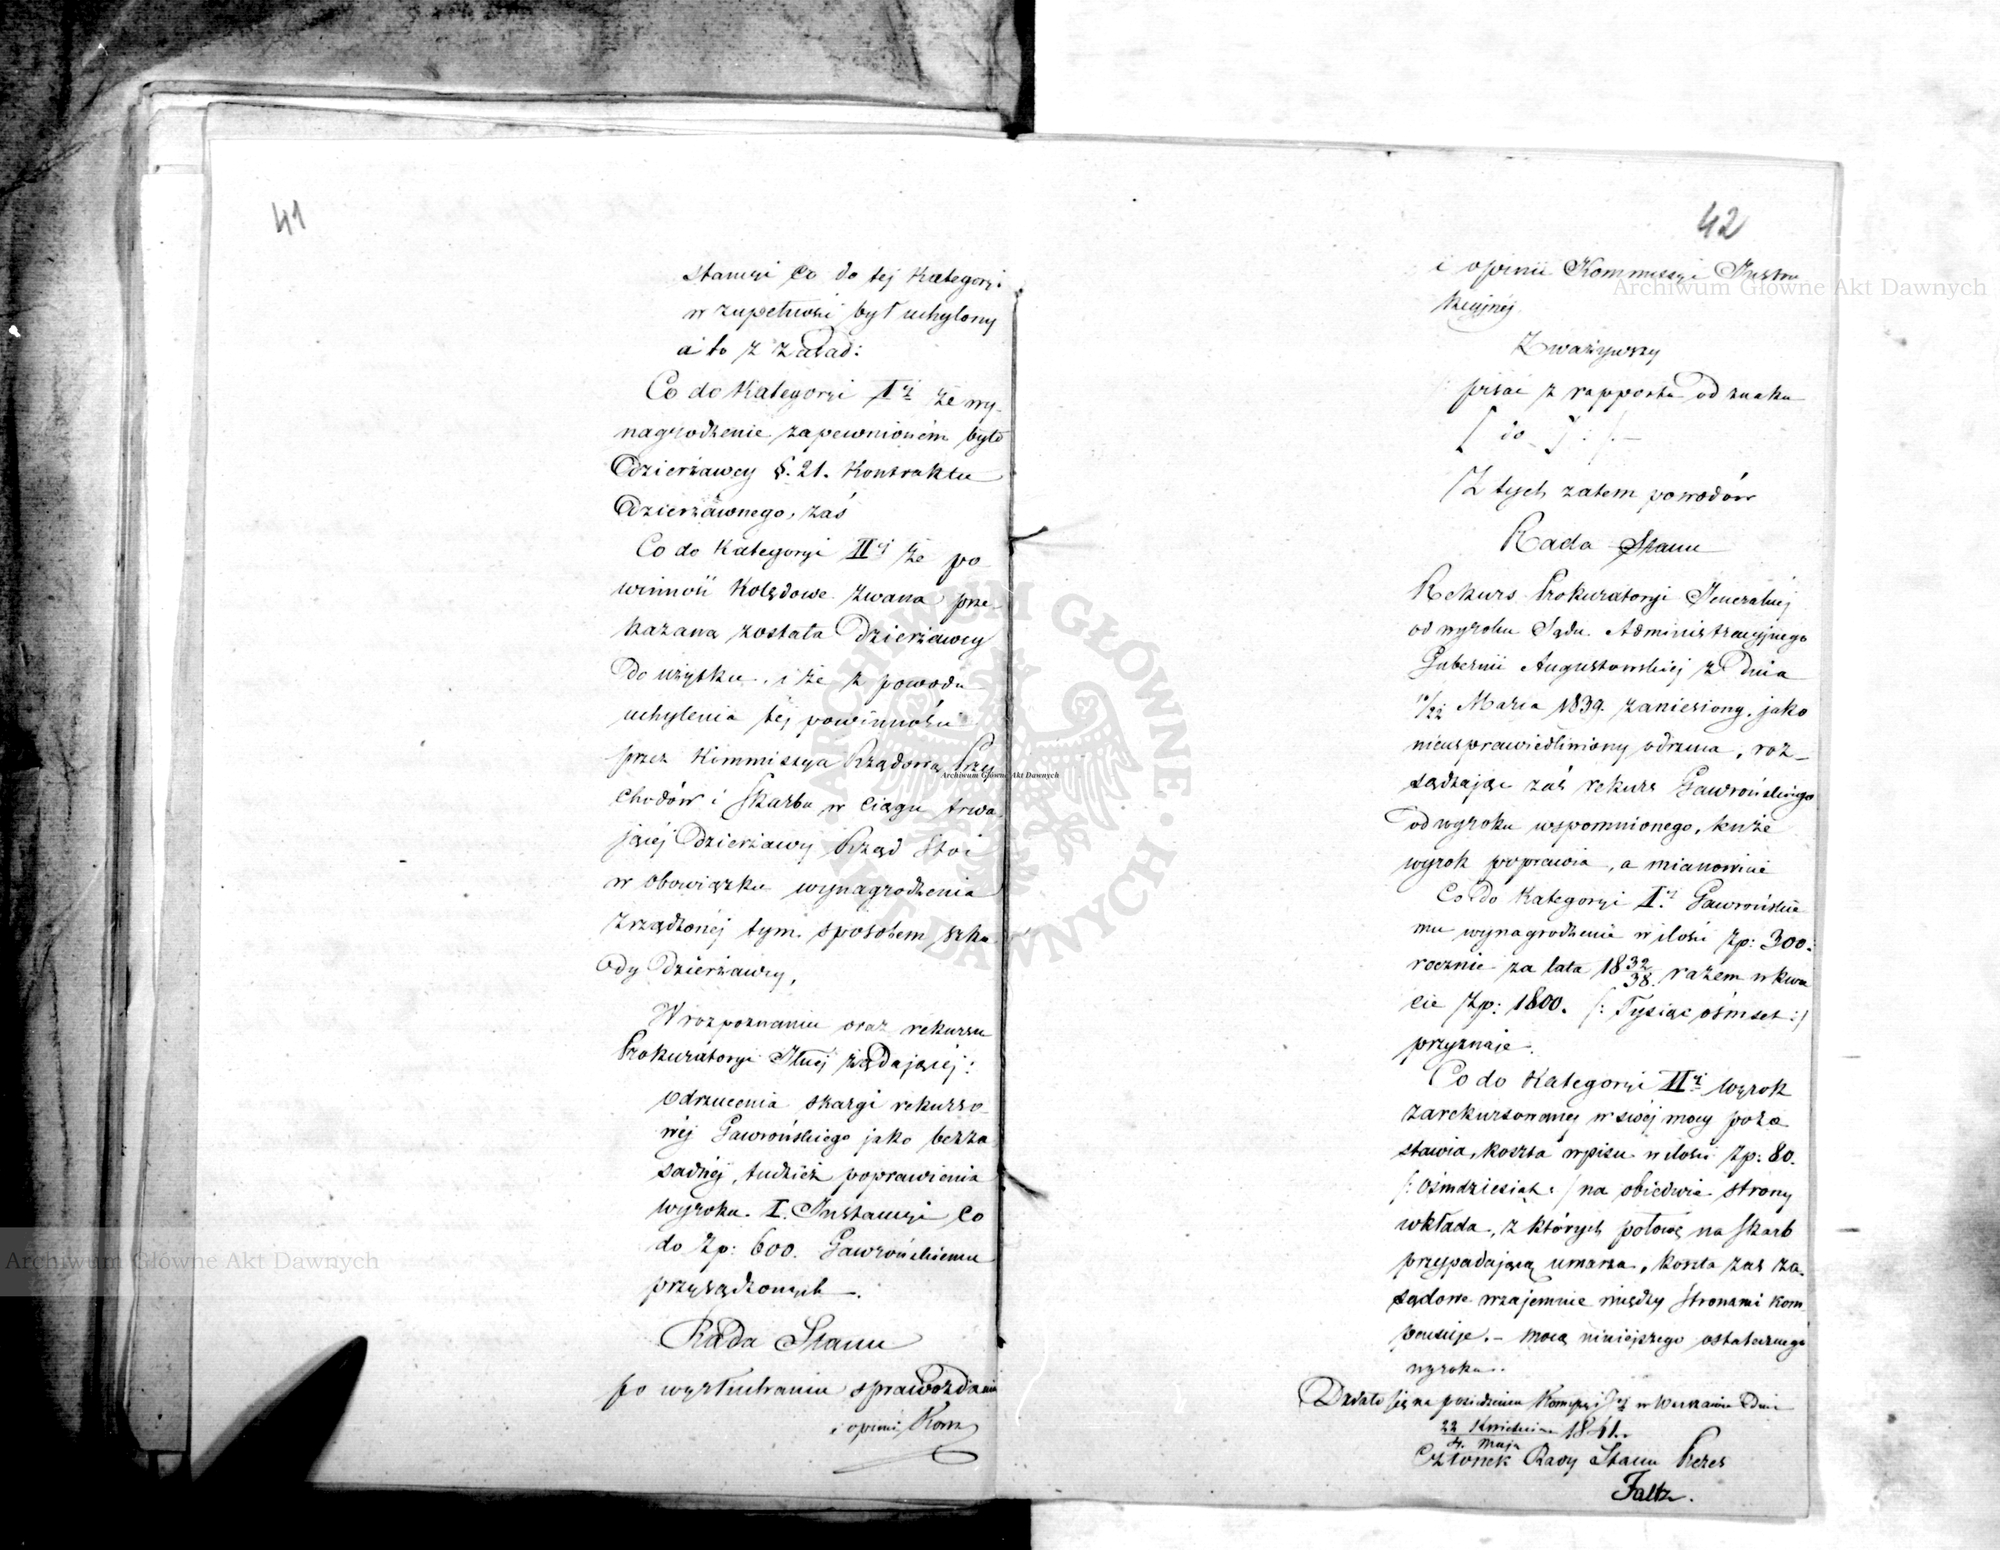 41
stancyi co do tej Kategoryi
w zupełności był uchylony
a to z zasad:
Co do Kategoryi Iéj że wy-
nagrodzenie zapewnioném było
Dzierżawcy §. 21. Kontraktu
Dzierżawnego, zaś
Co do Kategoryi IIéj że po
winność Kolędowe zwana prze-
kazaną została Dzierżawcy
Do użytku, i że z powodu
uchylenia téj powinności
przez Kommissyą Rządową Przy
chodów i Skarbu w ciągu trwa
jącéj Dzierżawy Rząd stoi
w obowiązku wynagrodzenia
zrządzonéj tym sposobem szko
dy Dzierżawcy,
W rozpoznaniu oraz rekursu
Prokuratoryi żądającéj:
odrzucenia skargi rekurso-
wéj Gawrońskiego jako bezza
sadnéj, tudzież poprawienia
wyroku I. Instancyi co
do Zp: 600. Gawrońskiemu
przysądzonych.
Rada Stanu
po wysłuchaniu sprawozdania
i opinii Kom
42
i opinii Kommissyi Instru
kcyjnéj.
Zważywszy
pisać z rapportu od znaku
[ do ] :/.
Z tych zatem powodów
Rada Stanu
Rekurs Prokuratoryi Jeneralnéj
od wyroku Sądu Administracyjnego
Gubernii Augustowskiej z Dnia
10/22 Marca 1839. zaniesiony, jako
nieusprawiedliwiony odrzuca, roz-
sądzając zaś rekurs Gawrońskiego
od wyroku wspomnionego, tenże
wyrok poprawia, a mianowicie
Co Do Kategoryi Iéj Gawrońskie
mu wynagrodzenie w ilości Zp: 300.
rocznie za lata 1832/38. razem w kwo
cie Zp: 1800. /: Tysiąc ośmset :/
przyznaje.
Co do Kategoryi IIéj wyrok
zarekursowany w swéj mocy pozo
stawia, koszta wpisu w ilości Zp: 80.
/: Ośmdziesiąt :/ na obiedwie strony
wkłada, z których połowę na Skarb
przypadającą umarza, koszta zaś za-
sądowe wzajemnie między Stronami kom
pensuje. - mocą niniejszego ostatecznego
wyroku.
Działo się na posiedzeniu w Warszawie Dnia
22 Kwietnia / 4. Maja 1841.
Członek Rady Stanu Prezes
Faltz.
Archiwum Główne Akt Dawnych
Archiwum Główne Akt Dawnych
Archiwum Główne Akt Dawnych
ARCHIWUM GŁÓWNE AKT DAWNYCH